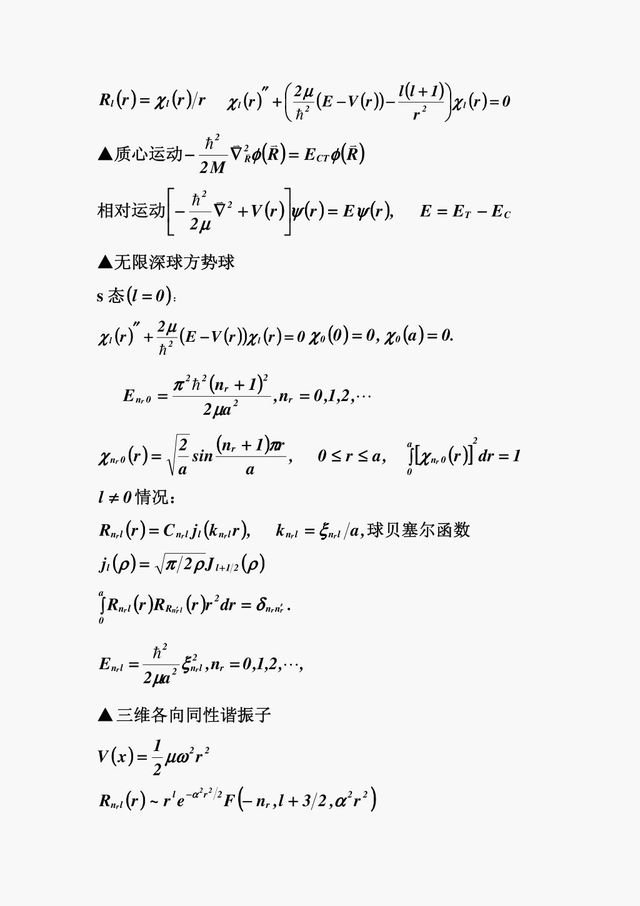 R_l(r) = χ_l(r)/r  χ_l(r)″ + (2μ/ħ² (E − V(r)) − l(l + 1)/r²) χ_l(r) = 0
▲质心运动 − ħ²/2M ∇̄²_R̄ ϕ(R̄) = E_CT ϕ(R̄)
相对运动[− ħ²/2μ ∇̄² + V(r)]ψ(r) = Eψ(r),  E = E_T − E_C
▲无限深球方势球
s 态(l = 0):
χ_l(r)″ + 2μ/ħ² (E − V(r))χ_l(r) = 0 χ_0(0) = 0, χ_0(a) = 0.
E_{n_r 0} = π²ħ²(n_r + 1)²/2μa², n_r = 0,1,2,⋯
χ_{n_r 0}(r) = √(2/a) sin (n_r + 1)πr/a,  0 ≤ r ≤ a,  ∫₀^a [χ_{n_r 0}(r)]² dr = 1
l ≠ 0 情况:
R_{n_r l}(r) = C_{n_r l} j_l(k_{n_r l} r),  k_{n_r l} = ξ_{n_r l}/a, 球贝塞尔函数
j_l(ρ) = √(π/2ρ) J_{l+1/2}(ρ)
∫₀^a R_{n_r l}(r) R_{R_{n_r′ l}}(r) r² dr = δ_{n_r n_r′}.
E_{n_r l} = ħ²/2μa² ξ²_{n_r l}, n_r = 0,1,2,⋯,
▲三维各向同性谐振子
V(x) = 1/2 μω²r²
R_{n_r l}(r) ~ r^l e^{−α²r²/2} F(−n_r, l + 3/2, α²r²)